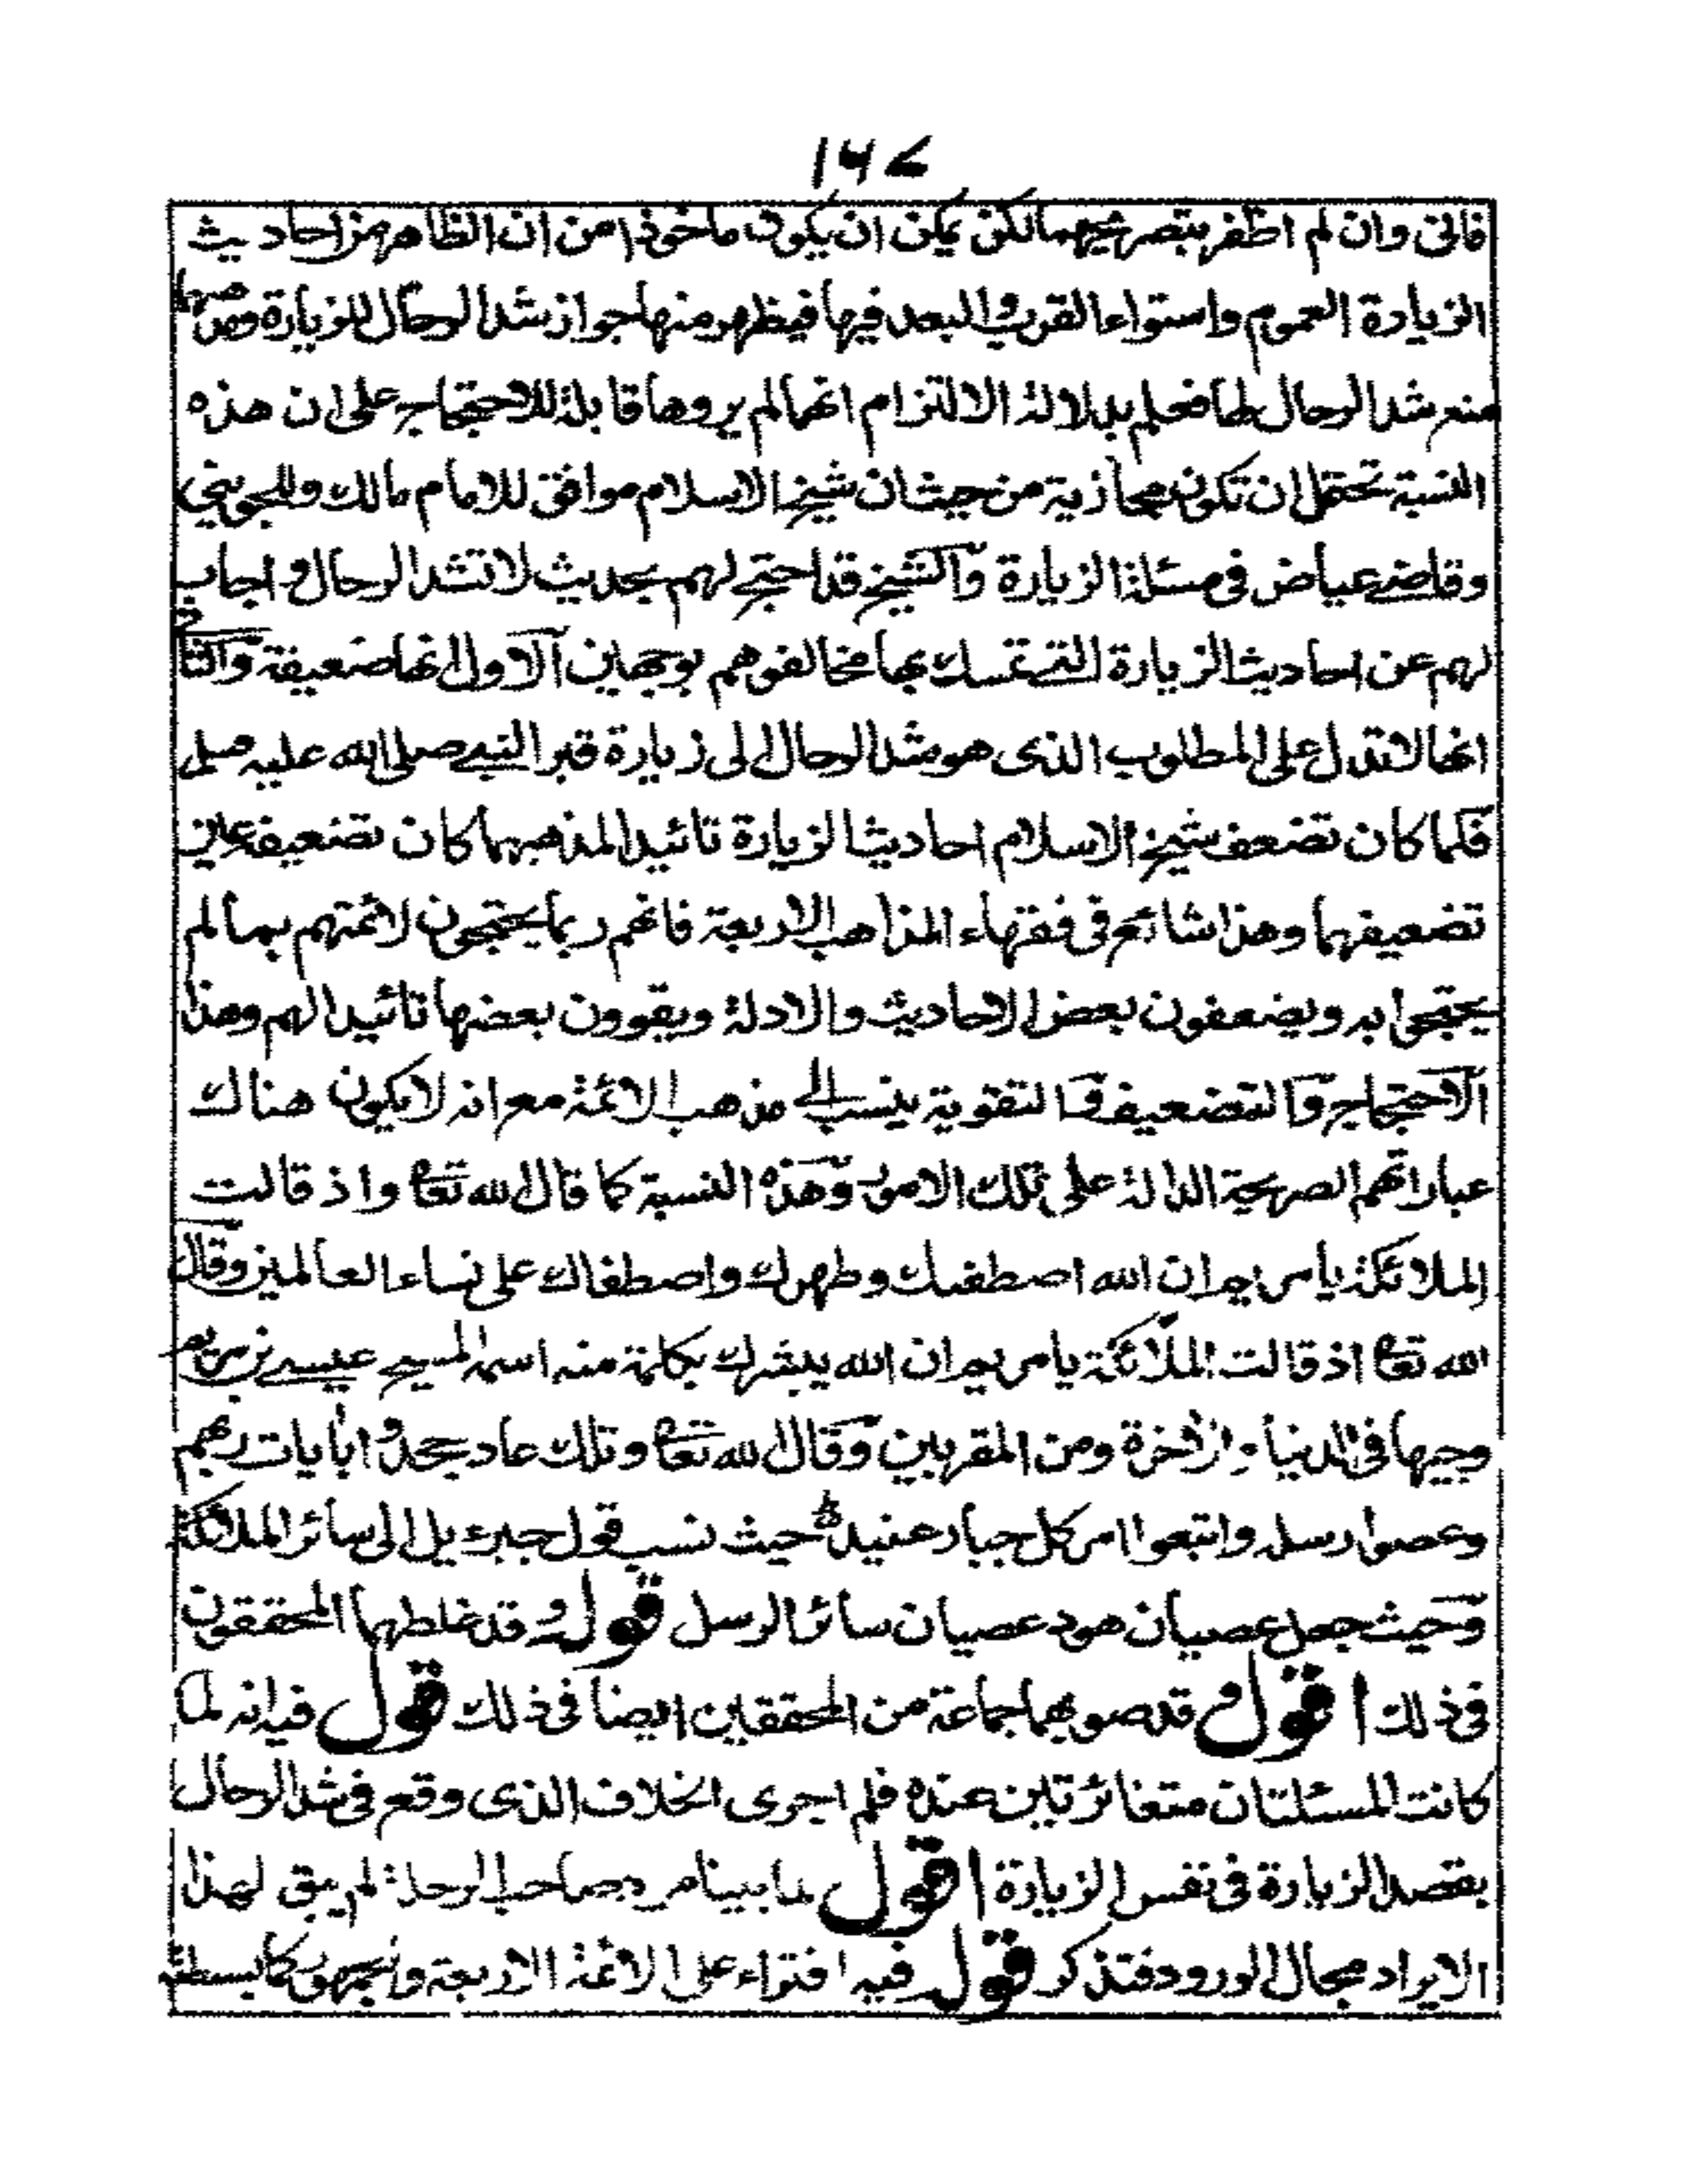 ١٦٧
فانی وان لم اظفر بتصریحهما لکن یمکن ان یکون ماخوذا من ان الظاهر من احادیث
الزیارة العموم واستواء القرب والبعد فیها فیظهر منها جواز شد الرحال للزیارة ومن
منع شد الرحال لها فعلم بدلالة الالتزام انهما لم یروها قابلة للاحتجاج علی ان هذه
النسبة تحتمل ان تکون مجازیة من حیث ان شیخ الاسلام موافق للامام مالك وللجوینی
وقاضی عیاض فی مسئلة الزیارة والشیخ قد احتج لهم بحدیث لا تشد الرحال واجاب
لهم عن احادیث الزیارة التی تمسك بها مخالفوهم بوجهین الاول انها ضعیفة والثانی
انها لا تدل علی المطلوب الذی هو شد الرحال الی زیارة قبر النبی صلی الله علیه وسلم
فکما کان تضعف شیخ الاسلام احادیث الزیارة تائیدا لمذهبهما کان تضعیفه عین
تضعیفهما وهذا شائع فی فقهاء المذاهب الاربعة فانهم ربما یحتجون لائمتهم بما لم
یحتجوا به ویضعفون بعض الاحادیث والادلة ویقوون بعضها تائیدا لهم وهذا
الاحتجاج والتضعیف والتقویة ینسب الی مذهب الائمة مع انه لا یکون هناك
عباراتهم الصریحة الدالة علی تلك الامور وهذه النسبة کما قال الله تعا واذ قالت
الملائکة یا مریم ان الله اصطفىك وطهرك واصطفاك علی نساء العالمین وقال
الله تعا اذ قالت الملائکة یا مریم ان الله یبشرك بکلمة منه اسمه المسیح عیسی بن مریم
وجیها فی الدنیا والآخرة ومن المقربین وقال الله تعا وتلك عاد جحدوا بآیات ربهم
وعصوا رسله واتبعوا امر کل جبار عنید حیث نسب قول جبریل الی سائر الملائکة
وحیث جعل عصیان هود عصیان سائر الرسل قوله وقد غلطهما المحققون
فی ذلك اقول قد صوبهما جماعة من المحققین ایضا فی ذلك قوله فیه انه لما
کانت المسئلتان متغائرتین عنده فلم اجری الخلاف الذی وقع فی شد الرحال
بقصد الزیارة فی نفس الزیارة اقول لما بینا مراد صاحب الرحلة لم یبق لهذا
الایراد مجال الورود فتذکر قوله فیه افتراء علی الائمة الاربعة والجمهور کما بسطته